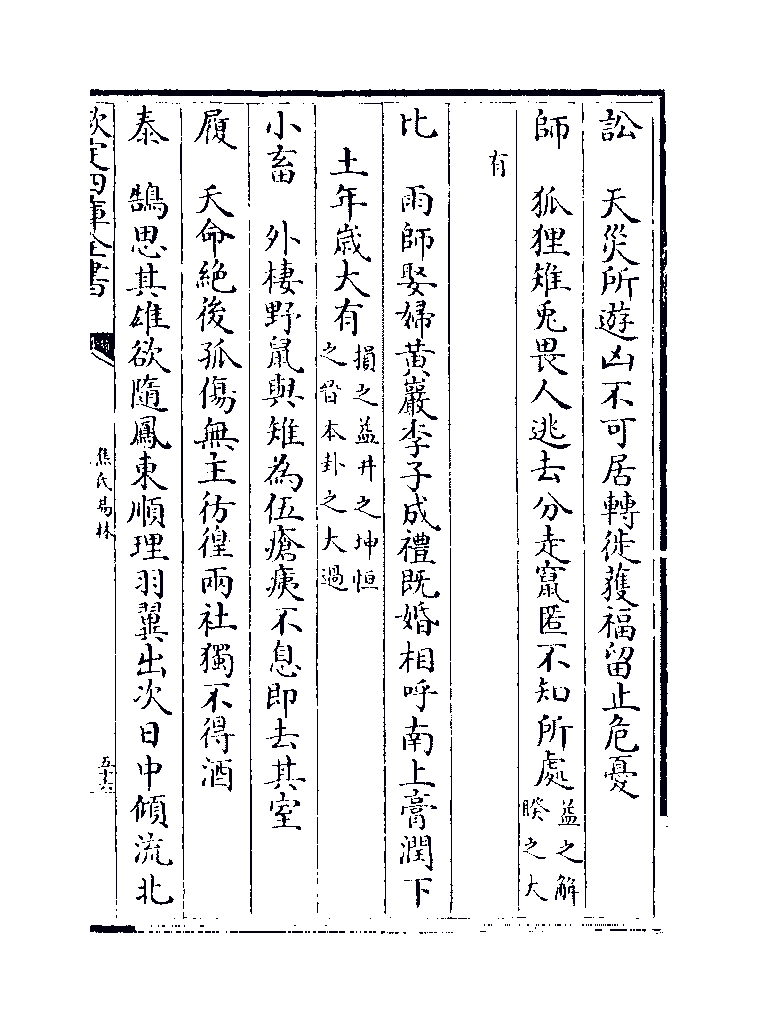 訟　天災所遊凶不可居轉徙獲福留止危憂
師　狐狸雉兎畏人逃去分走竄匿不知所處益之解
睽之大
有
比　雨師娶婦黃巖李子成禮既婚相呼南上膏潤下
土年歲大有損之益井之坤恒
之晉本卦之大過
小畜　外棲野鼠與雉為伍瘡痍不息即去其室
履　天命絶後孤傷無主彷徨兩社獨不得酒
泰　鵠思其雄欲隨鳳東順理羽翼出次日中傾流北
欽定四庫全書
焦氏易林
五十六